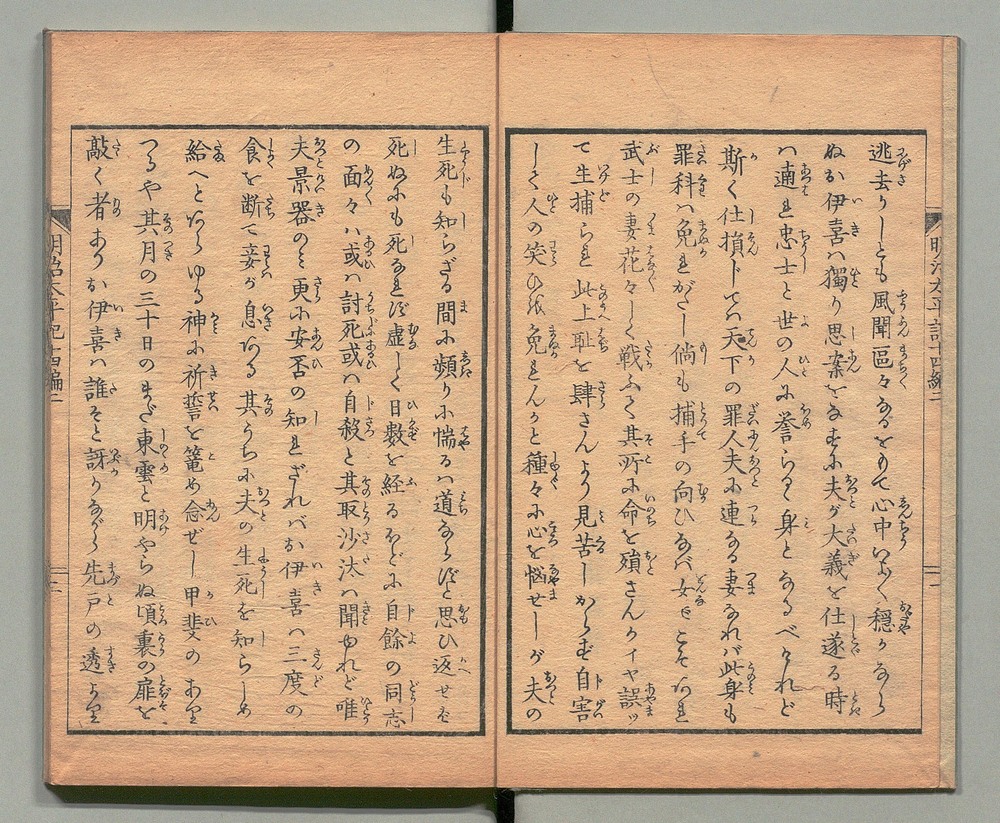 逃去りしとも風聞區々なるをもて心中いよ〳〵穏かなら
ぬか伊喜ハ獨り思案をなすに夫が大義を仕遂る時
ハ適れ忠士と世の人に誉らるゝ身となるべけれど
斯く仕損じてハ天下の罪人夫に連なる妻なれバ此身も
罪科ハ免れがたし倘も捕手の向ひなバ女ゟこそハあれ
武士の妻花々しく戦ふて其所に命を殞さんかイヤ誤ッ
て生捕られ此上耻を肆さんより見苦しからず自害
して人の笑ひを免れんかと種々に心を悩せしが夫の
生死も知らざる間に頻りに惴るハ道ならずと思ひ返せば
死ぬにも死なれず虚しく日数を経るほどに自餘の同志
の面々ハ或ハ討死或ハ自殺と其取沙汰ハ聞ゆれど唯
夫景器のミ更に安否の知れざれバお伊喜ハ三度の
食を断て妾が息ある其うちに夫の生死を知らしめ
給へとあらゆる神に祈誓を篭め念ぜし甲斐のあり
つるや其月の三十日のまだ東雲と明やらぬ頃裏の扉を
敲く者あり お伊喜ハ誰そと訝りながら先戸の透より
明治太平記十四編二